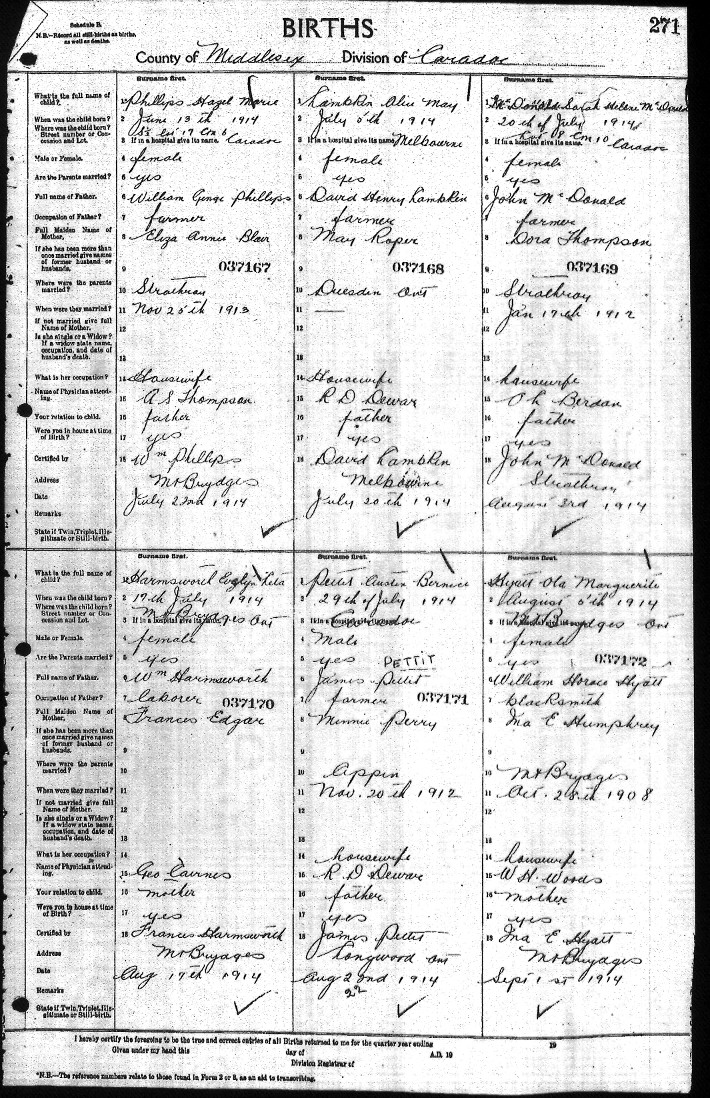 Schedule B.
N.B.—Record all still-births as births,
as well as deaths.
BIRTHS
271
County of Middlesex Division of Caradoc
Surname first. Surname first. Surname first.
What is the full name of child? 1 Phillips Hazel Marie 1 Lampkin Alice May 1 McDonald Sarah Helene McDonald
When was the child born? 2 June 13th 1914 2 July 5th 1914 2 20th of July 1914
Where was the child born? Street number or Concession and Lot. 3 If in hospital give its name. Caradoc 3 If in a hospital give its name. Melbourne 3 If in a hospital give its name. Con 10 Caradoc
Male or Female. 4 female 4 female 4 female
Are the Parents married? 5 yes 5 yes 5 yes
Full name of Father. 6 William George Phillips 6 David Henry Lampkin 6 John McDonald
Occupation of Father? 7 farmer 7 farmer 7 farmer
Full Maiden Name of Mother. 8 Eliza Annie Blair 8 May Roper 8 Dora Thompson
If she has been more than once married give names of former husband or husbands. 9 037167 9 037168 9 037169
Where were the parents married? 10 Strathroy 10 Dresden Ont 10 Strathroy
When were they married? 11 Nov 25th 1913 11 — 11 Jan 17th 1912
If not married give full Name of Mother. 12 12 12
Is she single or a Widow? If a widow state name, occupation, and date of husband's death. 13 13 13
What is her occupation? 14 Housewife 14 Housewife 14 housewife
Name of Physician attending. 15 A S Thompson 15 R D Dewar 15 O L Berdan
Your relation to child. 16 father 16 father 16 father
Were you in house at time of Birth? 17 yes 17 yes 17 yes
Certified by 18 Wm Phillips 18 David Lampkin 18 John McDonald
Address Mt Brydges Melbourne Strathroy
Date July 22nd 1914 July 20th 1914 August 3rd 1914
Remarks
State if Twin, Triplet, Illegitimate or Still-birth. ✓ ✓ ✓
Surname first. Surname first. Surname first.
What is the full name of child? 1 Harmsworth Evelyn Leta 1 Pettit Austin Bernice 1 Hyatt Ola Marguerite
When was the child born? 2 17th July 1914 2 29th of July 1914 2 August 5th 1914
Where was the child born? Street number or Concession and Lot. 3 If in a hospital give its name. Mt Brydges Ont 3 If in a hospital give its name. Caradoc 3 If in a hospital give its name. Mt Brydges Ont
Male or Female. 4 female 4 Male 4 female
Are the Parents married? 5 yes 5 yes PETTIT 5 yes 037172
Full name of Father. 6 Wm Harmsworth 6 James Pettit 6 William Horace Hyatt
Occupation of Father? 7 laborer 037170 7 farmer 037171 7 blacksmith
Full Maiden Name of Mother. 8 Frances Edgar 8 Minnie Perry 8 Ina E Humphrey
If she has been more than once married give names of former husband or husbands. 9 9 9
Where were the parents married? 10 10 Appin 10 Mt Brydges
When were they married? 11 11 Nov. 20th 1912 11 Oct. 28th 1908
If not married give full Name of Mother. 12 12 12
Is she single or a Widow? If a widow state name, occupation, and date of husband's death. 13 13 13
What is her occupation? 14 14 housewife 14 housewife
Name of Physician attending. 15 Geo Cairnes 15 R D Dewar 15 W H. Woods
Your relation to child. 16 mother 16 father 16 Mother
Were you in house at time of Birth? 17 yes 17 yes 17 yes
Certified by 18 Frances Harmsworth 18 James Pettit 18 Ina E Hyatt
Address Mt Brydges Longwood Ont Mt Brydges
Date Aug 17th 1914 Aug 22nd 1914 Sept 1st 1914
Remarks 22
State if Twin, Triplet, Illegitimate or Still-birth. ✓ ✓ ✓
I hereby certify the foregoing to be the true and correct entries of all Births returned to me for the quarter year ending 19
Given under my hand this day of A.D. 19
Division Registrar of
*N.B.—The reference numbers relate to those found in Form 2 or 8, as an aid to transcribing.